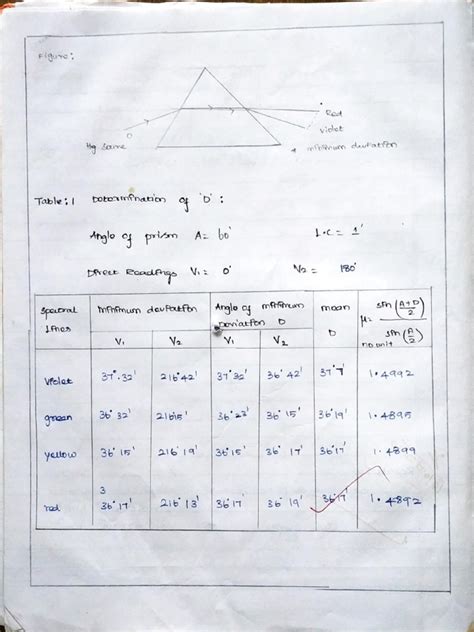 Figure:
Red
Violet
Hg Source
minimum deviation
Table:1 Determination of 'D':
Angle of prism A= 60° L.C = 1'
Direct Readings V₁ = 0° V₂ = 180°
Spectral Lines | minimum deviation | Angle of minimum Deviation D | mean D | μ= sin (A+D/2) / sin (A/2) no unit
V₁ V₂ V₁ V₂
violet 37°32' 216°42' 37°32' 36°42' 37°7' 1.4992
green 36°32' 216°15' 36°23' 36°15' 36°19' 1.4895
yellow 36°15' 216°19' 36°15' 36°17' 36°17' 1.4899
3
red 36°17' 216°13' 36°17' 36°19' 36°17' 1.4892